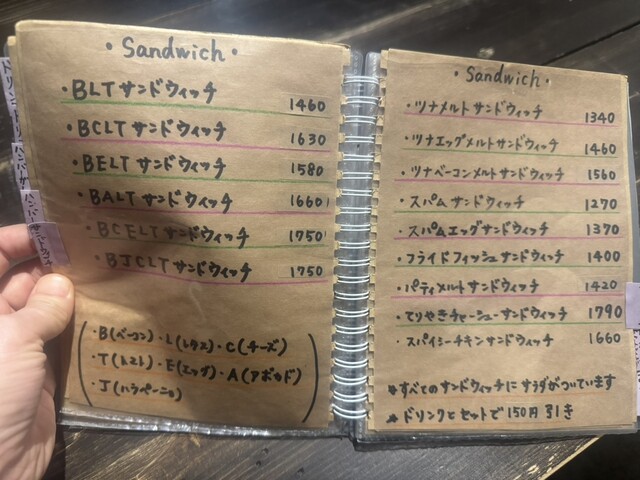 ・Sandwich・
・BLTサンドウィッチ 1460
・BCLTサンドウィッチ 1630
・BELTサンドウィッチ 1580
・BALTサンドウィッチ 1660
・BCELTサンドウィッチ 1750
・BJCLTサンドウィッチ 1750
・B(ベーコン)・L(レタス)・C(チーズ)
・T(トマト)・E(エッグ)・A(アボカド)
・J(ハラペーニョ)
・Sandwich・
・ツナメルトサンドウィッチ 1340
・ツナエッグメルトサンドウィッチ 1460
・ツナベーコンメルトサンドウィッチ 1560
・スパムサンドウィッチ 1270
・スパムエッグサンドウィッチ 1370
・フライドフィッシュサンドウィッチ 1400
・パティメルトサンドウィッチ 1420
・てりやきチャーシューサンドウィッチ 1790
・スパイシーチキンサンドウィッチ 1660
※すべてのサンドウィッチにサラダがついています
※ドリンクとセットで150円引き